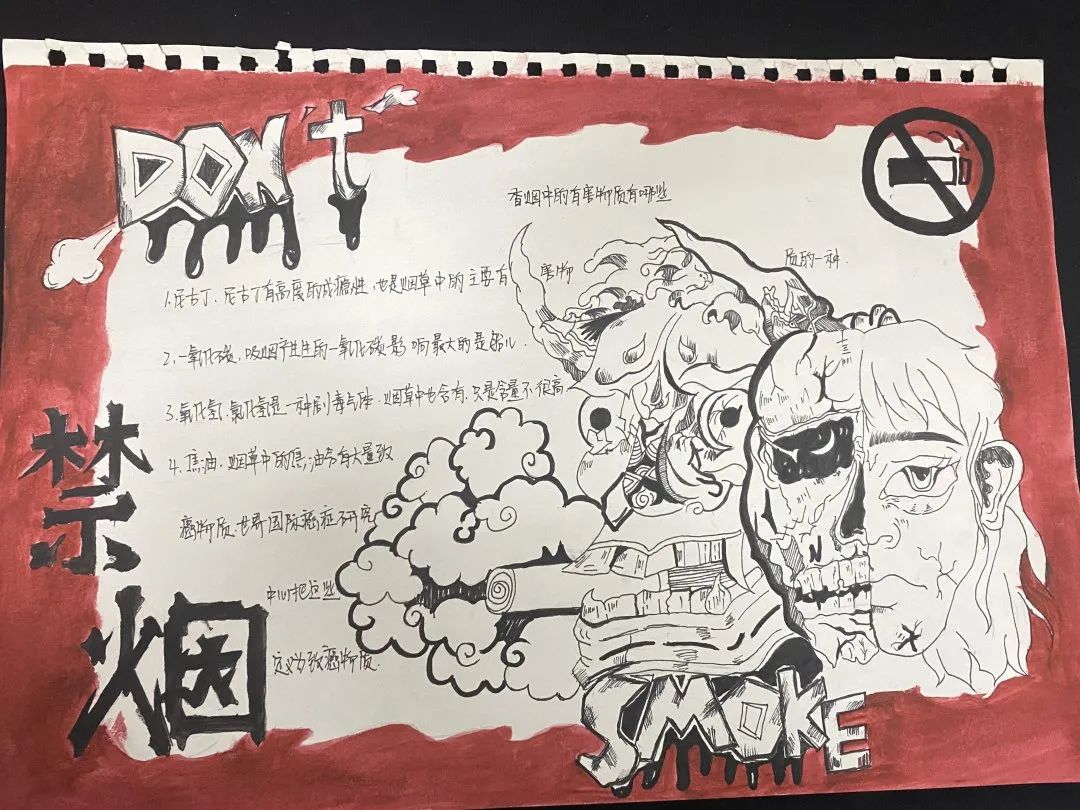 DON't
香烟中的有害物质有哪些
1.尼古丁.尼古丁有高度的成瘾性,也是烟草中的主要有害物质的一种.
2.一氧化碳,吸烟产生的一氧化碳影响最大的是胎儿.
3.氰化氢,氰化氢是一种剧毒气体.烟草中也含有,只是含量不很高
4.焦油.烟草中的焦油含有大量致
癌物质.世界国际癌症研究
中心把这些
定义为致癌物质.
禁烟
SMOKE